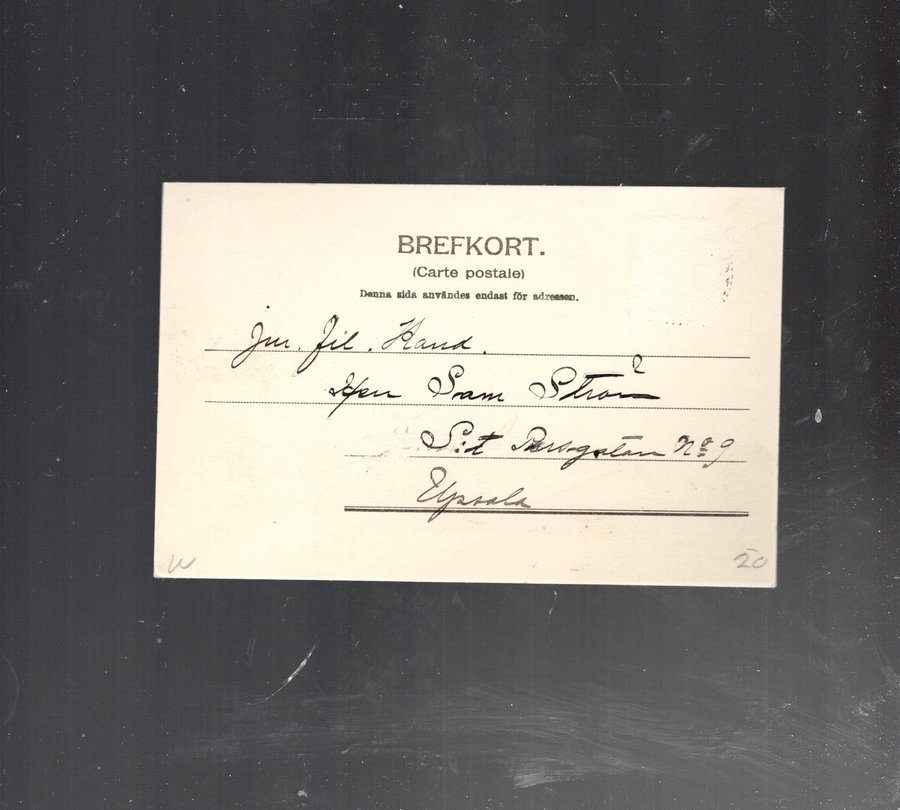 BREFKORT.
(Carte postale)
Denna sida användes endast för adressen.
Jur. Fil. Kand.
Herr Sam Ström
S:t N:o 9
Upsala
20